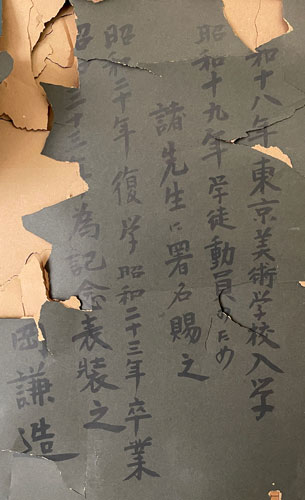 和十八年東京美術学校入学
昭和十九年学徒動員のため
諸先生に署名賜之
昭和二十年復学昭和二十三年卒業
二十三 為記念表装之
岡謙造